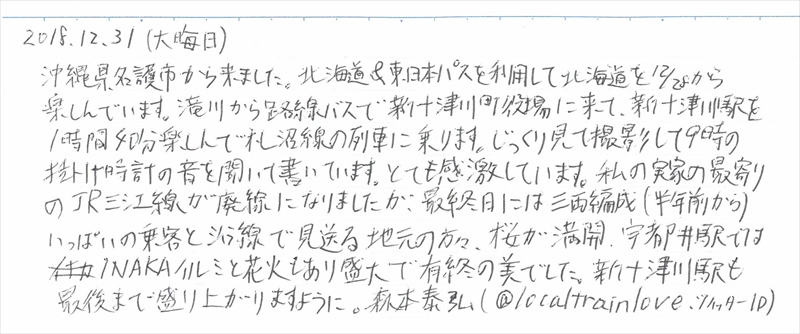 2018.12.31(大晦日)
沖縄県名護市から来ました。北海道&東日本パスを利用して北海道を12/28から
楽しんでいます。滝川から路線バスで新十津川町役場に来て、新十津川駅を
1時間40分楽しんで札沼線の列車に乗ります。じっくり見て撮影して9時の
掛け時計の音を聞いて書いています。とても感激しています。私の実家の最寄り
のJR三江線が廃線になりましたが、最終日には三両編成(半年前から)
いっぱいの乗客と沿線で見送る地元の方々、桜が満開、宇都井駅では
INAKAイルミと花火もあり盛大で有終の美でした。新十津川駅も
最後まで盛り上がりますように。森本泰弘(@localtrainlove.ツイッターID)